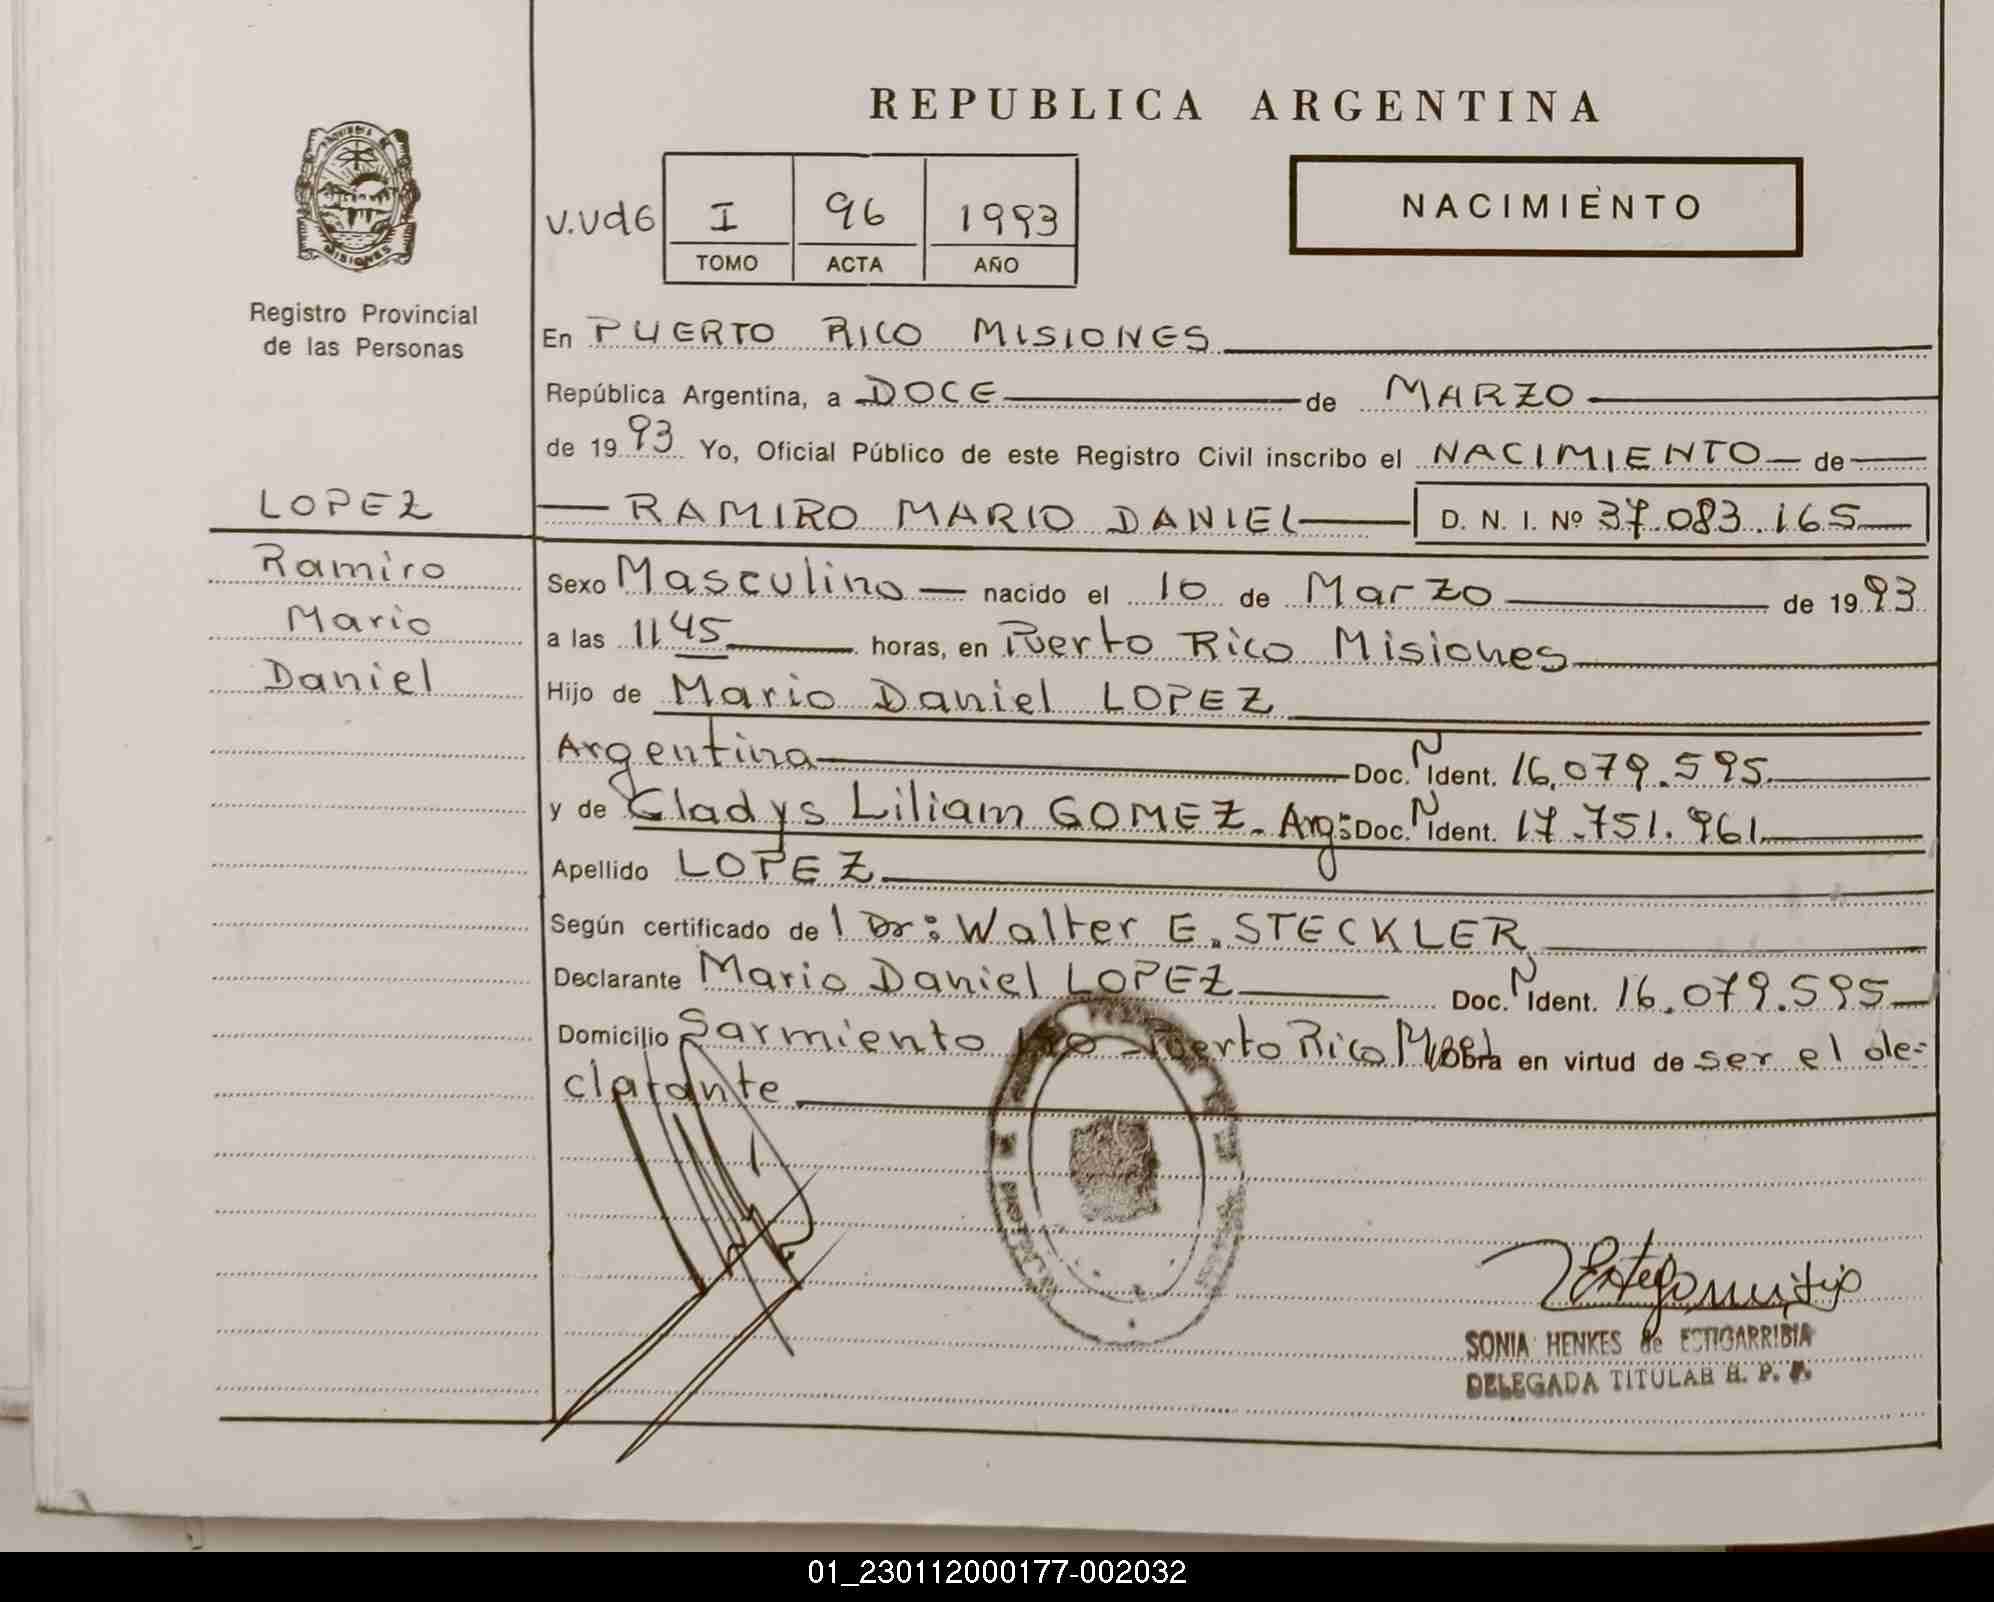 REPUBLICA ARGENTINA
NACIMIENTO
PROVINCIA DE
MISIONES
Registro Provincial
de las Personas
I 96 1993
TOMO ACTA AÑO
En PUERTO RICO MISIONES
República Argentina, a DOCE de MARZO
de 1993 Yo, Oficial Público de este Registro Civil inscribo el NACIMIENTO de
RAMIRO MARIO DANIEL D. N. I. Nº 37.083.165
LOPEZ
Ramiro
Mario
Daniel
Sexo Masculino nacido el 10 de Marzo de 1993
a las 11 45 horas, en Puerto Rico Misiones
Hijo de Mario Daniel LOPEZ
Argentina Doc. N Ident. 16.079.595
y de Gladys Liliam GOMEZ. Arg: Doc. N Ident. 17.751.961
Apellido LOPEZ
Según certificado de l Dr: Walter E. STECKLER
Declarante Mario Daniel LOPEZ Doc. N Ident. 16.079.595
Domicilio Sarmiento Puerto Rico Obra en virtud de ser el de-
clarante
SONIA HENKES de ESTIGARRIBIA
DELEGADA TITULAR R. P. P.
01_230112000177-002032